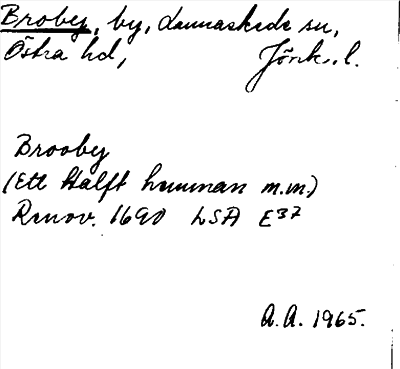 Broby, by, Lannaskede sn,
Östra hd, Jönk. l.
Brooby
(Ett Halft hemman m.m.)
Renov. 1690 LSA E37
A.A. 1965.